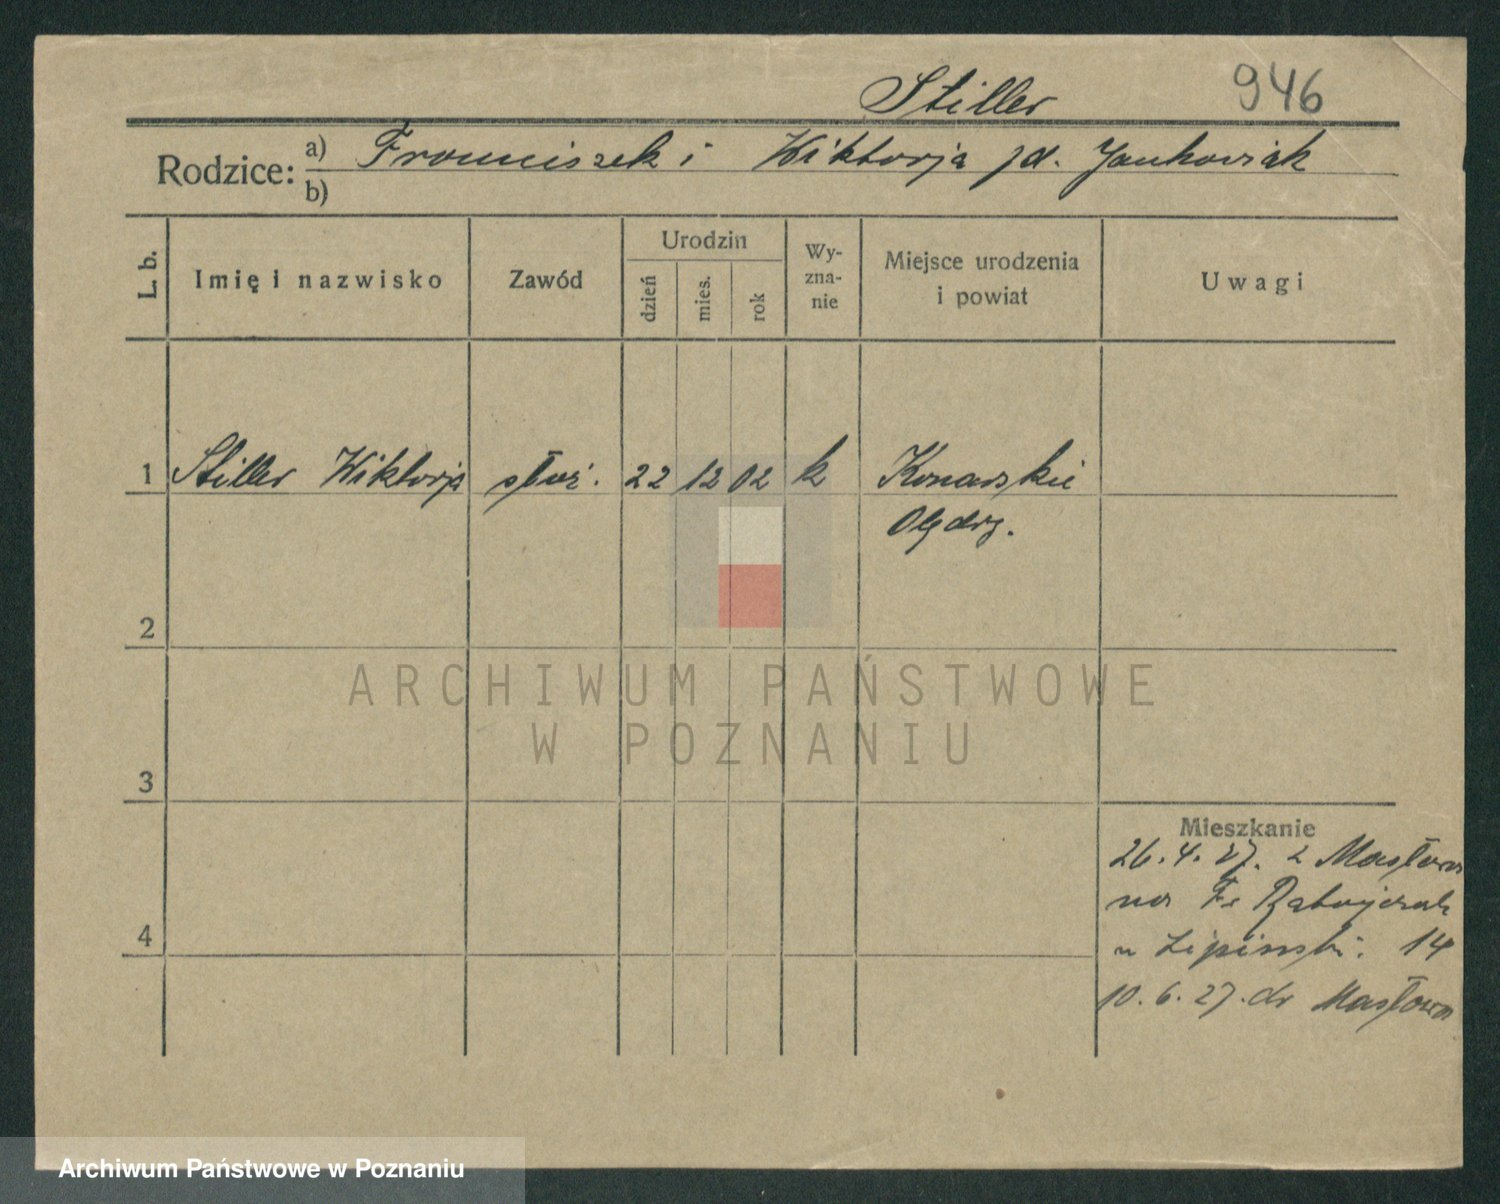 Stiller 946
Rodzice: a) Franciszek i Wiktorja zd. Jankowiak
b)
L. b. Imię i nazwisko Zawód Urodzin dzień mies. rok Wyzna-nie Miejsce urodzenia i powiat Uwagi
1 Stiller Wiktorja służ. 22 12 02 k Konarskie
2
3
Mieszkanie
26.4.27. z Masłowa
na Fr
4
u Lipiński. 14
10.6.27. do Masłowa
ARCHIWUM PAŃSTWOWE
W POZNANIU
Archiwum Państwowe w Poznaniu